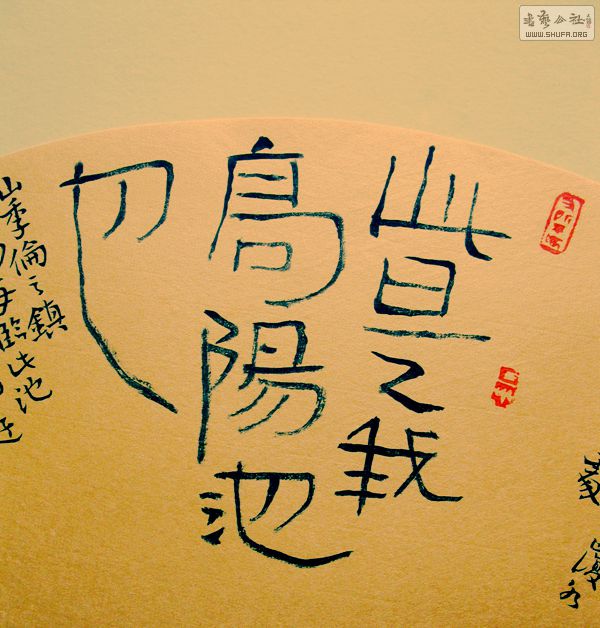 书艺公社
WWW.SHUFA.ORG
此是我
高陽池
也
山季倫之鎮
每臨此池